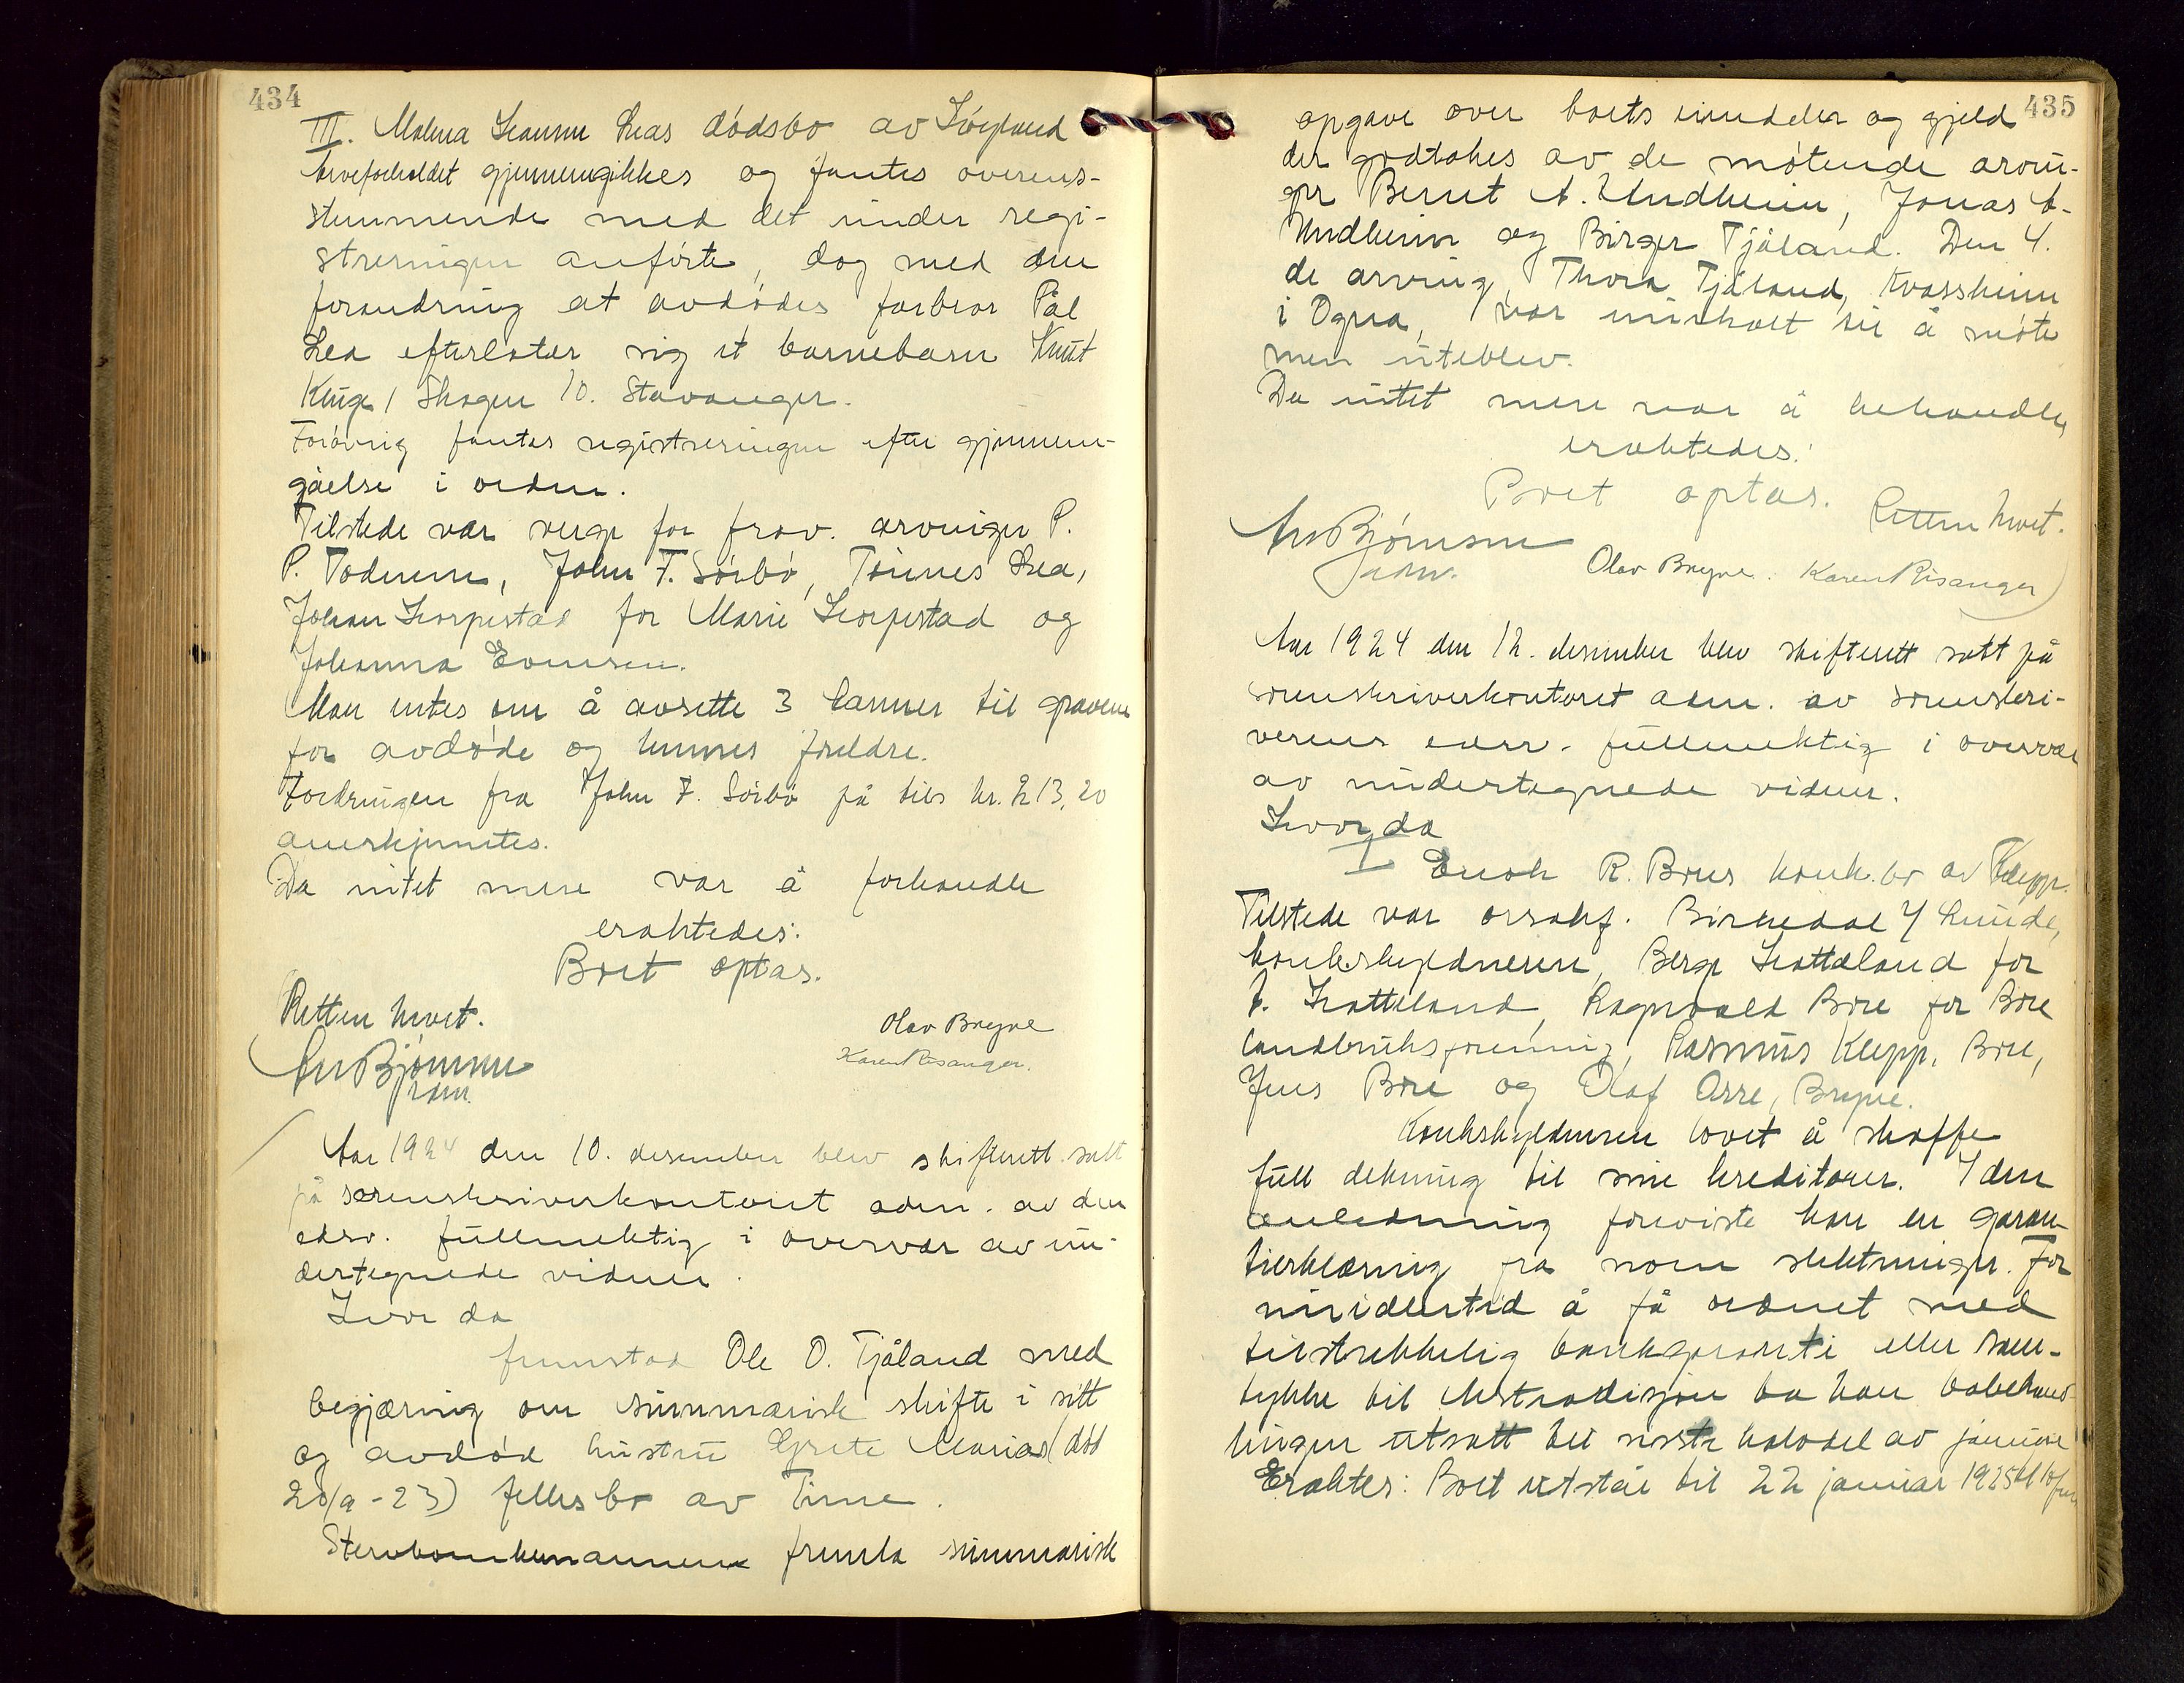 434
III. Malena Leas dødsbo av
Arveforholdet gjennemgikkes og fantes overens-
stemmende med det under regi-
streringen anførte, dog med den
forandring at avdødes farbror Pål
Lea efterlater sig et barnebarn Knut
Kluge, Skagen 10. Stavanger.
Forøvrig fantes registreringen efter gjennem-
gåelse i orden.
Tilstede var verge for frav. arvinger P.
P. Todnem, John F. Sörbö, Tönnes Lea,
Johan Skorpestad for Marie Skorpestad og
Johanna Evensen.
Man entes om å avsette 3 kanner til gravene
for avdøde og hennes foreldre.
Fordringen fra John F. Sörbö på tils kr. 213,20
anerkjentes.
Da intet mere var å forhandle
eraktedes:
Boet optas.
Retten hevet.
Olav Bryne
Karen Risanger.
Bjørnsen
adm.
Aar 1924 den 10. desember blev skifterett satt
på sorenskriverkontoret adm. av den
edsv. fullmektig i overvær av un-
dertegnede vidner.
Hvor da
fremstod Ole O. Tjåland med
begjæring om summarisk skifte i sitt
og avdød hustru Grete Marias (død
20/9-23) fellesbo av Time.
Stervboenkemannen fremla summarisk
435
opgave over boets eiendeler og gjeld
der godtokes av de møtende arvin-
ger Bernt A. Undheim, Jonas A.
Undheim og Birger Tjåland. Den 4.
de arving, Thora Tjåland, Kvassheim
i Ogna, var innkalt til å møte
men uteblev.
Da intet mere var å behandle,
eraktedes:
Boet optas.
Retten hevet.
Bjørnsen
adm.
Olav Bryne. Karen Risanger
Aar 1924 den 12. desember blev skifterett satt på
sorenskriverkontoret adm. av sorenskri-
verens edsv. fullmektig i overvær
av undertegnede vidner.
Hvor da
I Enok R. Bores konk.bo av Klepp.
Tilstede var orsakf. Birkedal f Lunde,
konkskyldneren, Berge Skatteland for
A. Skatteland, Ragnvald Bore for Bore
landbruksforening, Rasmus Klepp, Bore,
Jens Bore og Olaf Orre, Bryne.
Konkskyldneren lovet å skaffe
full dekning til sine kreditorer. I den
anledning foreviste han en garan-
tierklæring fra noen slektninger. For
imidlertid å få ordnet med
tilstrekkelig bankgaranti eller sam-
tykke til ekstradisjon ba han bobehand-
lingen utsatt til siste halvdel av januar
Eraktes: Boet utstår til 22 januar 1925 kl 10 fm